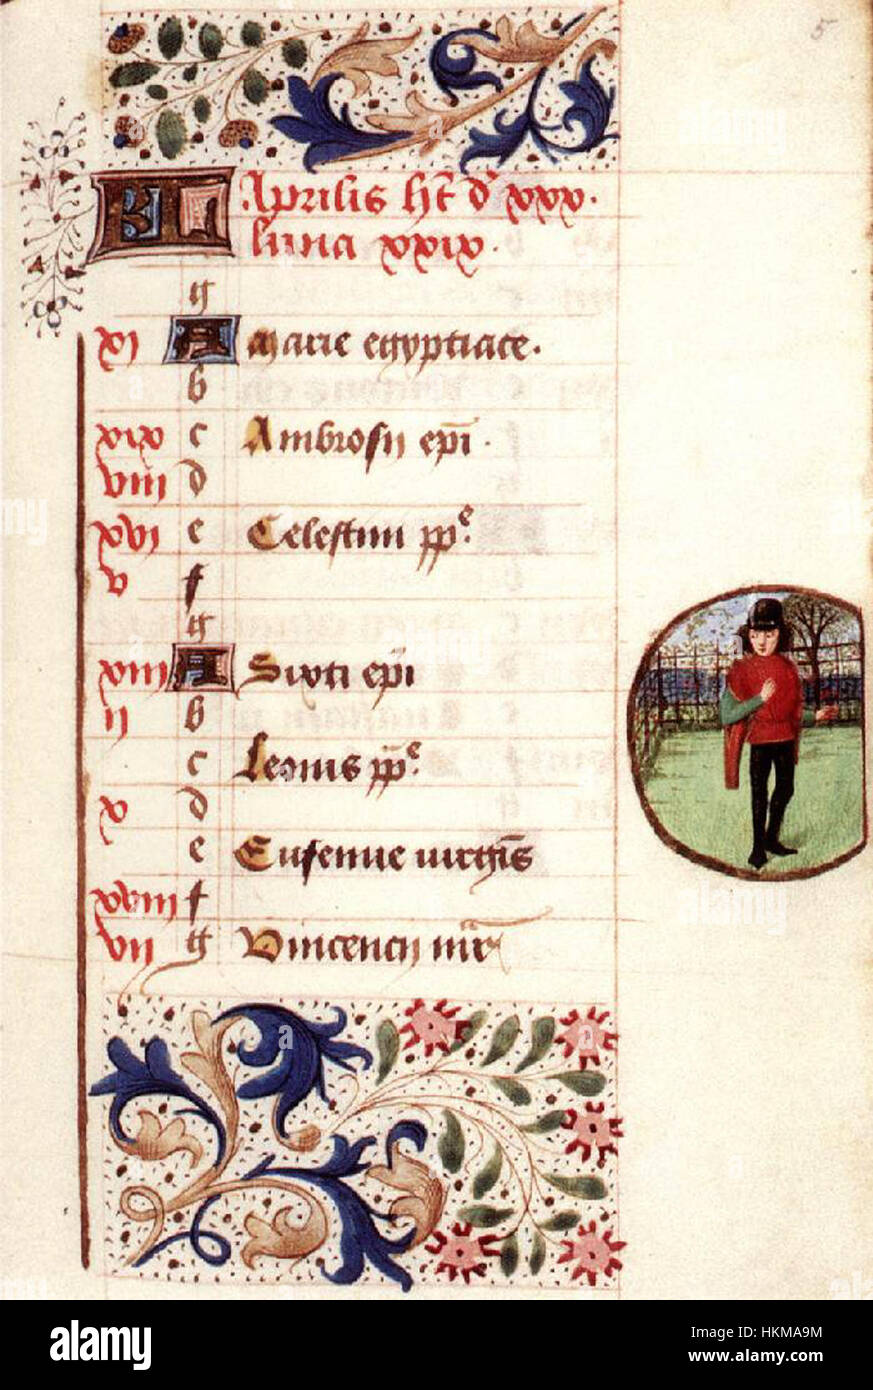 5
KL Aprilis ht dʒ xxx.
luna xxix.
g
xi A Marie egyptiace.
b
xix c Ambrosij epi.
viii d
xvi e Celestini ppe
v f
g
xiii A Sixti epi
ii b
c Leonis ppe
x d
e Eufemie virgis
xviii f
vii g Vincencij mr
alamy
Image ID: HKMA9M
www.alamy.com